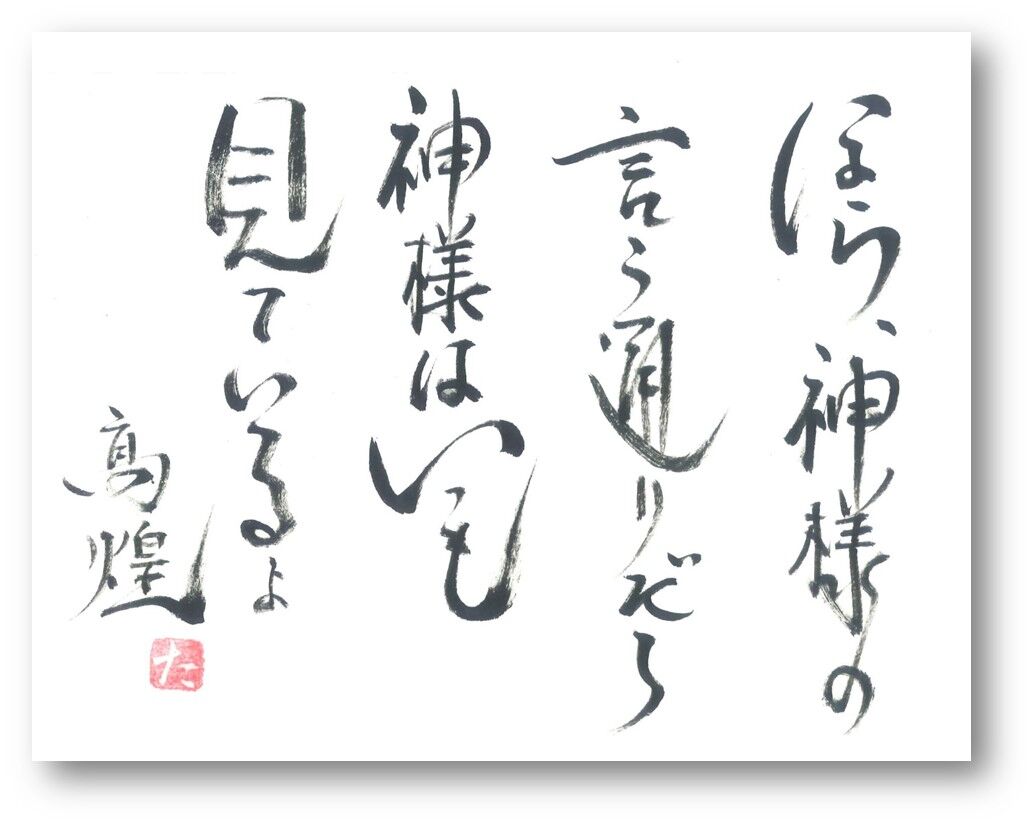 ほら、神様の
言う通りだろ
神様はいつも
見ているよ
高煌
た